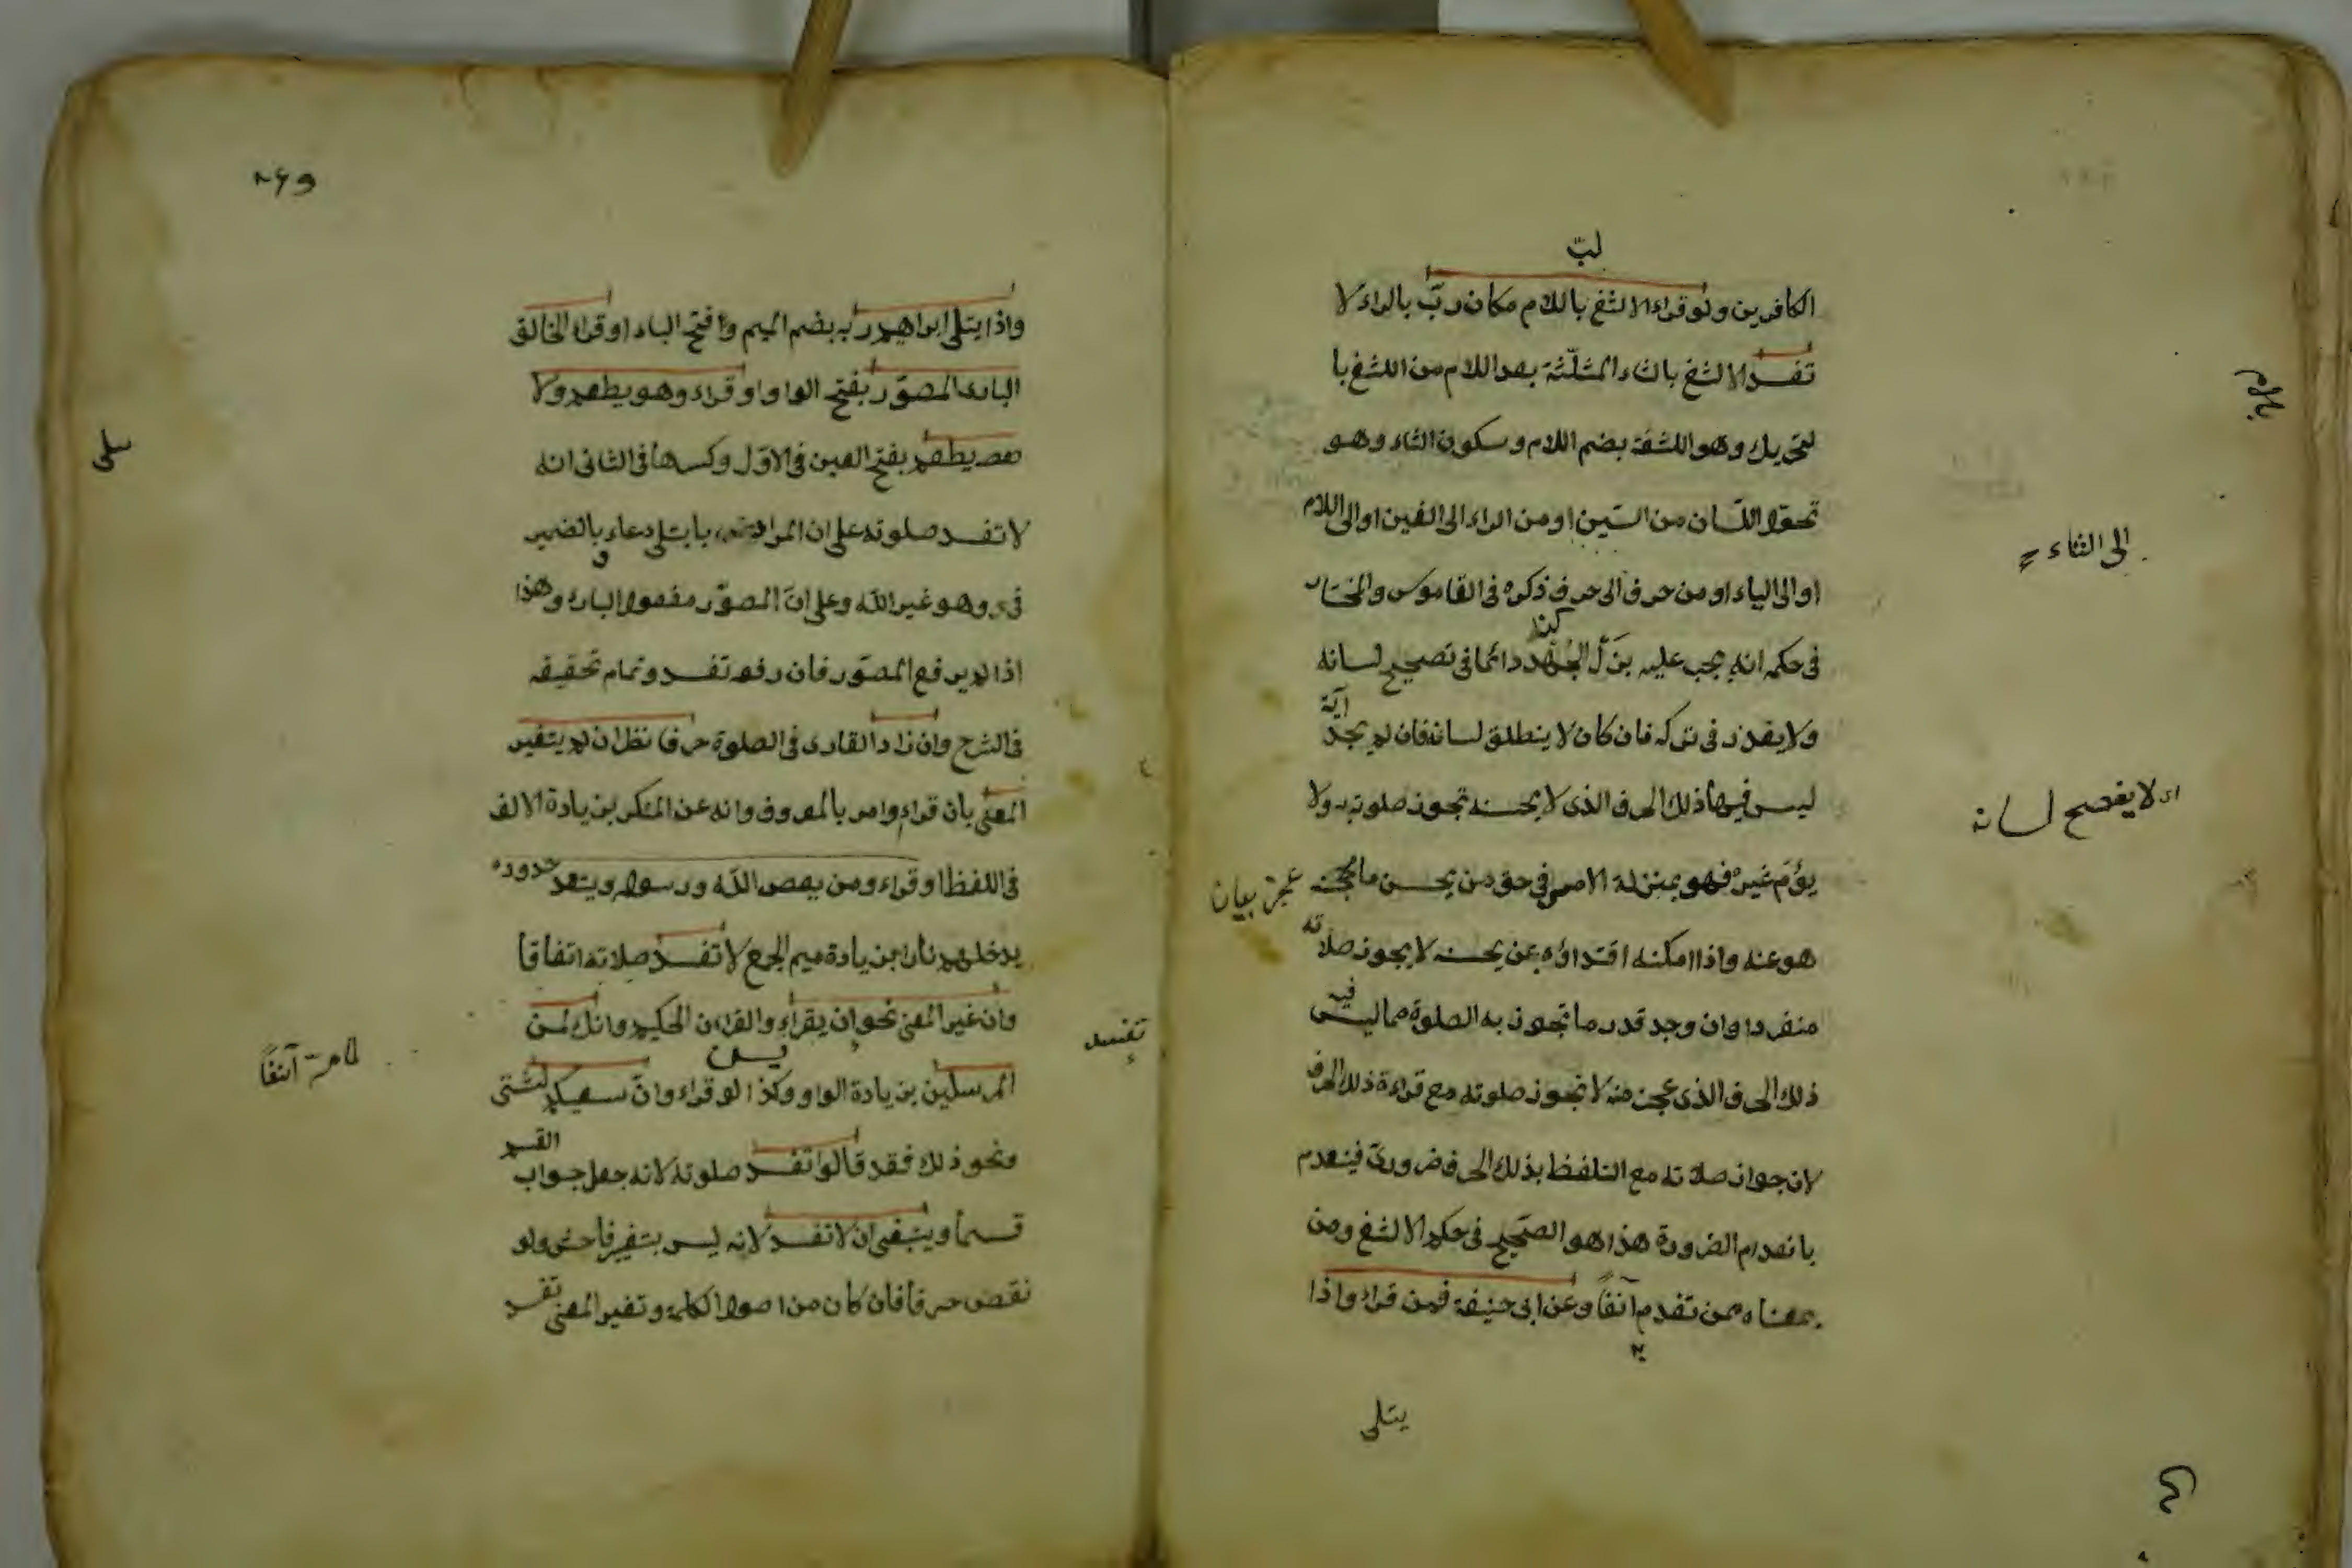 لبّ
الكافرين ولو قراء الالثغ باللام مكان ربّ بالراء لا
تفسد الالثغ بالثاء المثلّثة بعد اللام من اللثغ با
لتحريك وهو اللثغة بضم اللام وسكون الثاء وهو
تحوّل اللسان من السّين او من الراء الى الغين او الى اللام
الى الثاء
او الى الياء او من حرف الى حرف ذكره فى القاموس والمختار
فى حكمه انه يجب عليه بذل الجُهد دائما فى تصحيح لسانه
ولا يعذر فى تركه فان كان لا ينطلق لسانه فان لم يجد آية
اى لا يفصح لسانه
ليس فيها ذلك الحرف الذى لا يحسنه تجوز صلوته ولا
يؤم غيره فهو بمنزلة الامى فى حق من يحسن ما عجز
عجز بيان
هو عنه واذا امكنه اقتداؤه بمن يحسنه لا يجوز صلاته
منفردا وان وجد قدر ما تجوز به الصلوة مما ليس فيه
ذلك الحرف الذى عجز منه لا تجوز صلوته مع قراءة ذلك الحرف
لان جواز صلاته مع التلفظ بذلك الحرف ضرورى فينعدم
بانعدام الضرورة هذا هو الصحيح فى حكم الالثغ ومن
بمعناه ممن تقدم آنفاً وعن ابى حنيفة فمن قراء واذا
يتلى
واذا يتلى ابراهيم ربه بضم الميم وافتح الباء او قراء الخالق
البارى المصوّر بفتح الواو او قراء وهو يطعم ولا
يطعم بفتح العين فى الاوّل وكسرها فى الثانى انه
لا تفسد صلوته على ان المراد بابتلى دعاء بالضمير
وهو غير الله وعلى انّ المصوّر مفعول البارى وهذا
اذا لم يرفع المصوّر فان رفعه تفسد وتمام تحقيقه
فى الشرح وان زاد القارى فى الصلوة حرفا نظر ان لم يتغير
المعنى بان قراء وامر بالمعروف وانه عن المنكر بزيادة الالف
فى اللفظ او قراء ومن يعص الله ورسوله ويتعد حدوده
يدخلهم نارا بزيادة ميم الجمع لا تفسد صلاته اتفاقا
وان غير المعنى نحو ان يقراء والقران الحكيم وانك لمن
يس
تفسد
لما مرّ آنفاً
المرسلين بزيادة الواو وكذا لو قراء وانّ سعيكم لشتى
ونحو ذلك فقد قالوا تفسد صلوته لانه جعل جواب القسم
قسماً وينبغى ان لا تفسد لانه ليس بتغير فاحش ولو
نقص حرفا فان كان من اصول الكلمة وتغير المعنى تفسد